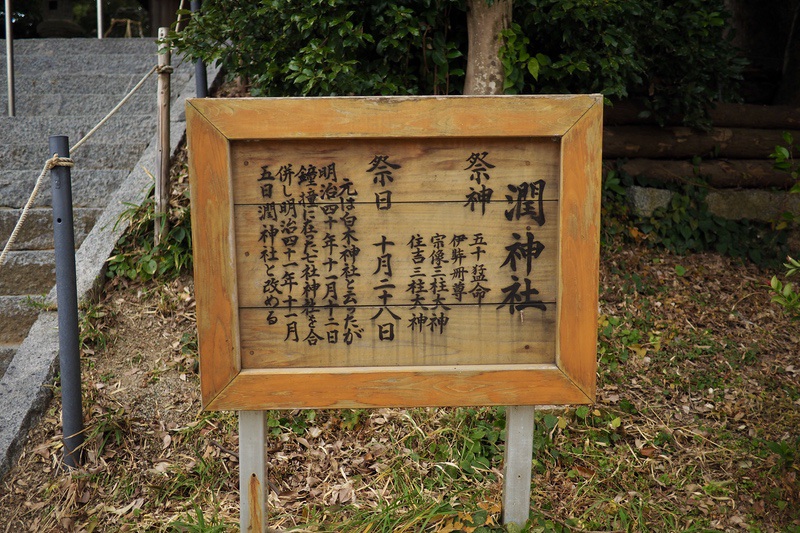 潤神社
祭神
五十猛命
伊弉冊尊
宗像三柱大神
住吉三柱大神
祭日 十月二十八日
元は白木神社と云ったが
明治四十年十月十二日
鐘撞に在った七社神社を合
併し明治四十一年十一月
五日潤神社と改める